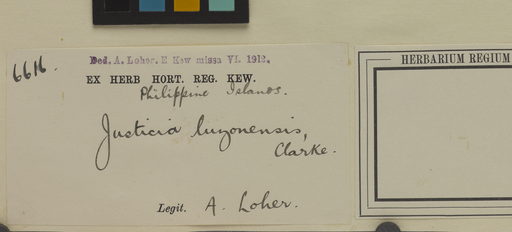 Ded. A. Loher. E Kew missa VI. 1912.
6616.
EX HERB HORT. REG. KEW.
Philippine Islands.
Justicia luzonensis,
Clarke.
Legit. A. Loher.
HERBARIUM REGIUM